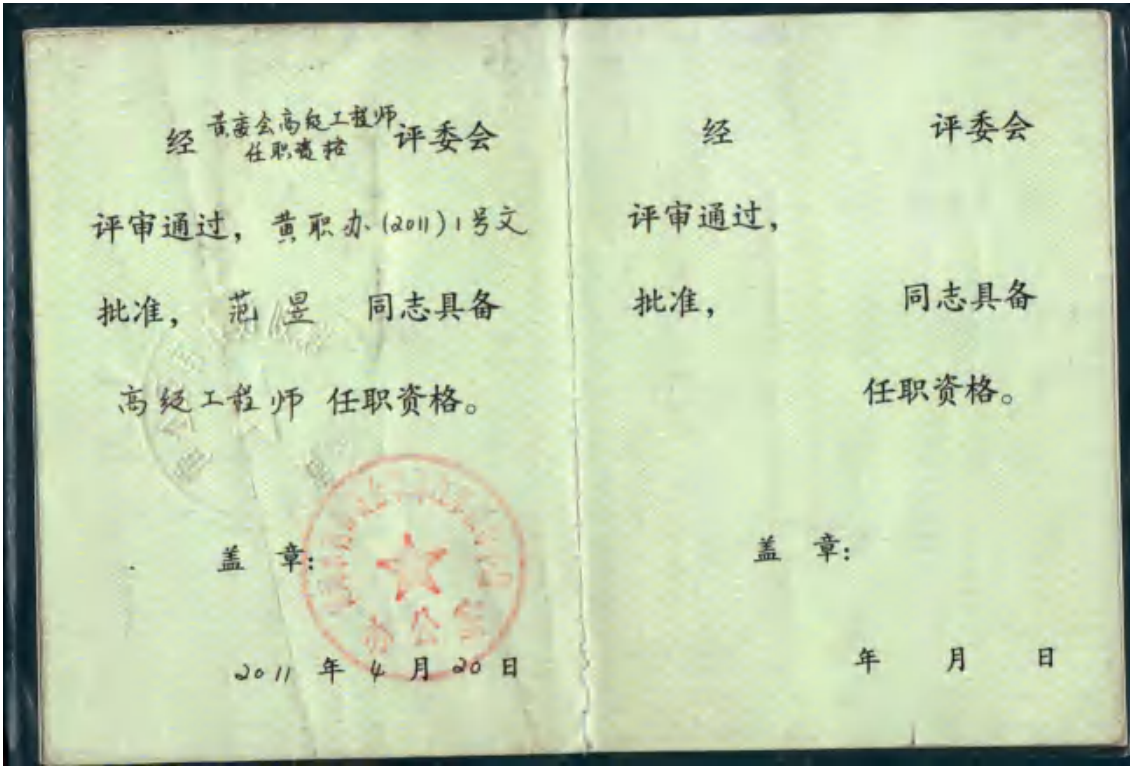 经 黄委会高级工程师 评委会
任职资格
评审通过，黄职办(2011)1号文
批准，范昱 同志具备
高级工程师 任职资格。
盖 章：
办公室
2011 年 4 月 20 日
经 评委会
评审通过，
批准， 同志具备
任职资格。
盖 章：
年 月 日